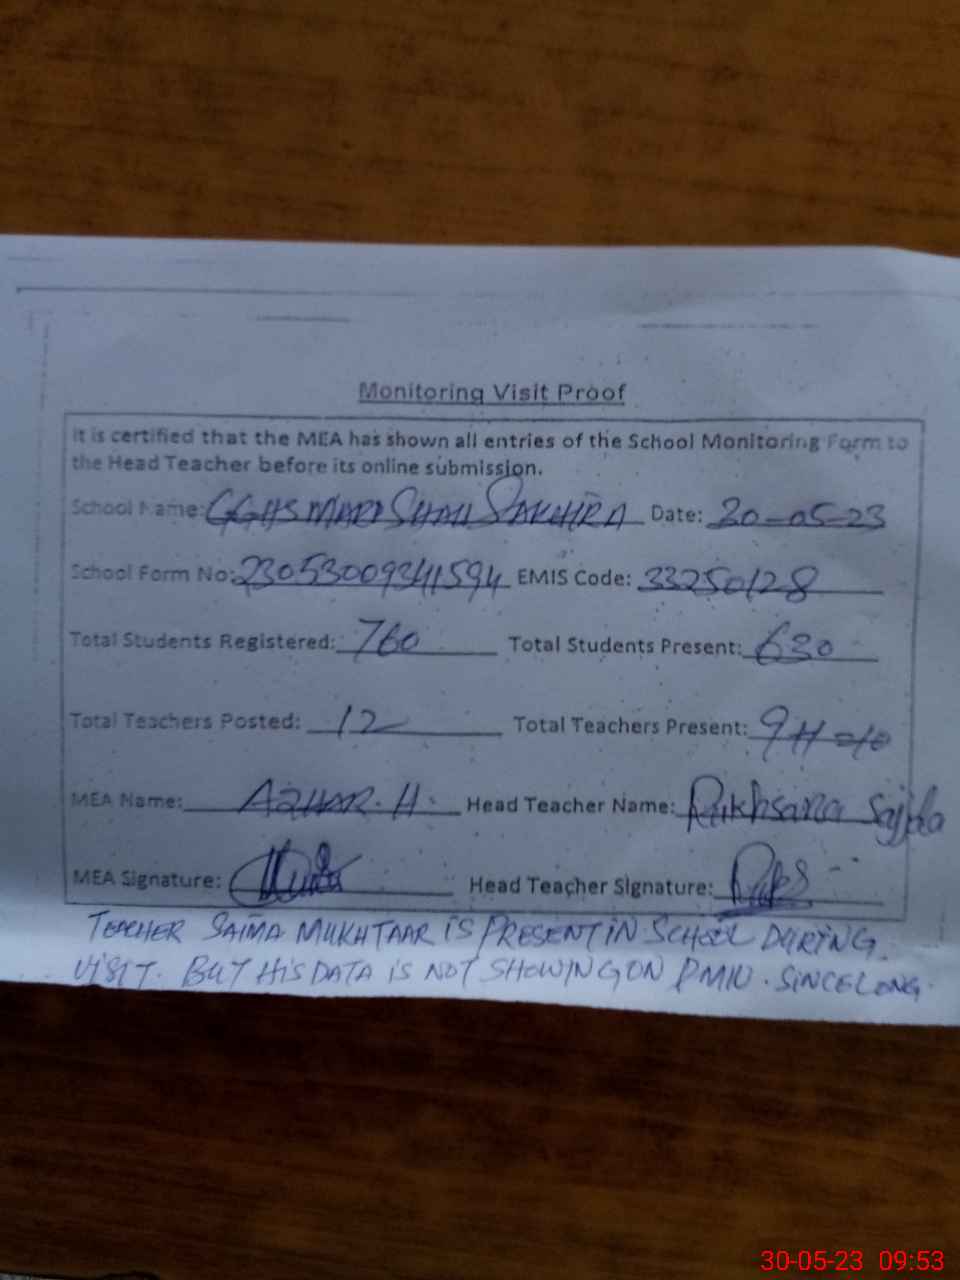 Monitoring Visit Proof
It is certified that the MEA has shown all entries of the School Monitoring Form to
the Head Teacher before its online submission.
School Name: GGHS MARI SHAH SAKHIRA Date: 30-05-23
School Form No: 23053009341594 EMIS Code: 33250128
Total Students Registered: 760 Total Students Present: 630
Total Teachers Posted: 12 Total Teachers Present: 9
MEA Name: AZHAR. H. Head Teacher Name: Rukhsana Sajjda
MEA Signature: Head Teacher Signature:
TEACHER SAIMA MUKHTAAR IS PRESENT IN SCHOOL DURING
VISIT. BUT HIS DATA IS NOT SHOWING ON PMIU. SINCE LONG.
30-05-23 09:53